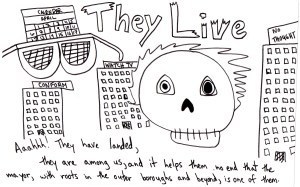 They Live
CALENDAR
APRIL
NO
THOUGHT
WATCH TV
CONFORM
OBEY
Aaahh! They have landed,
they are among us, and it helps them no end that the
mayor, with roots in the outer boroughs and beyond, is one of them.